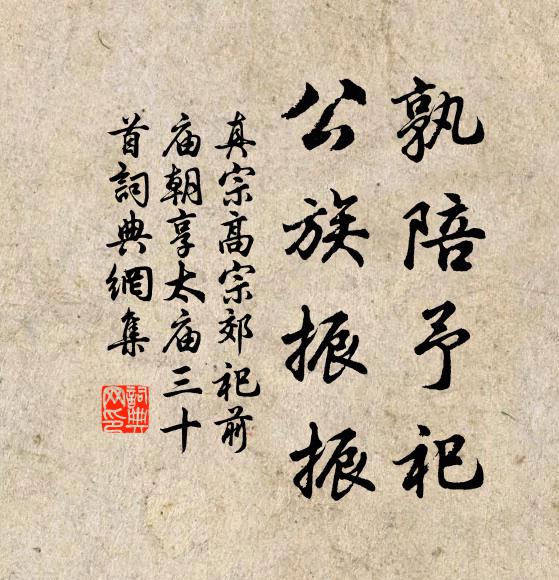 孰陪予祀
公族振振
真宗高宗郊祀前
庙朝享太庙三十
首詞典網集
詞典網印